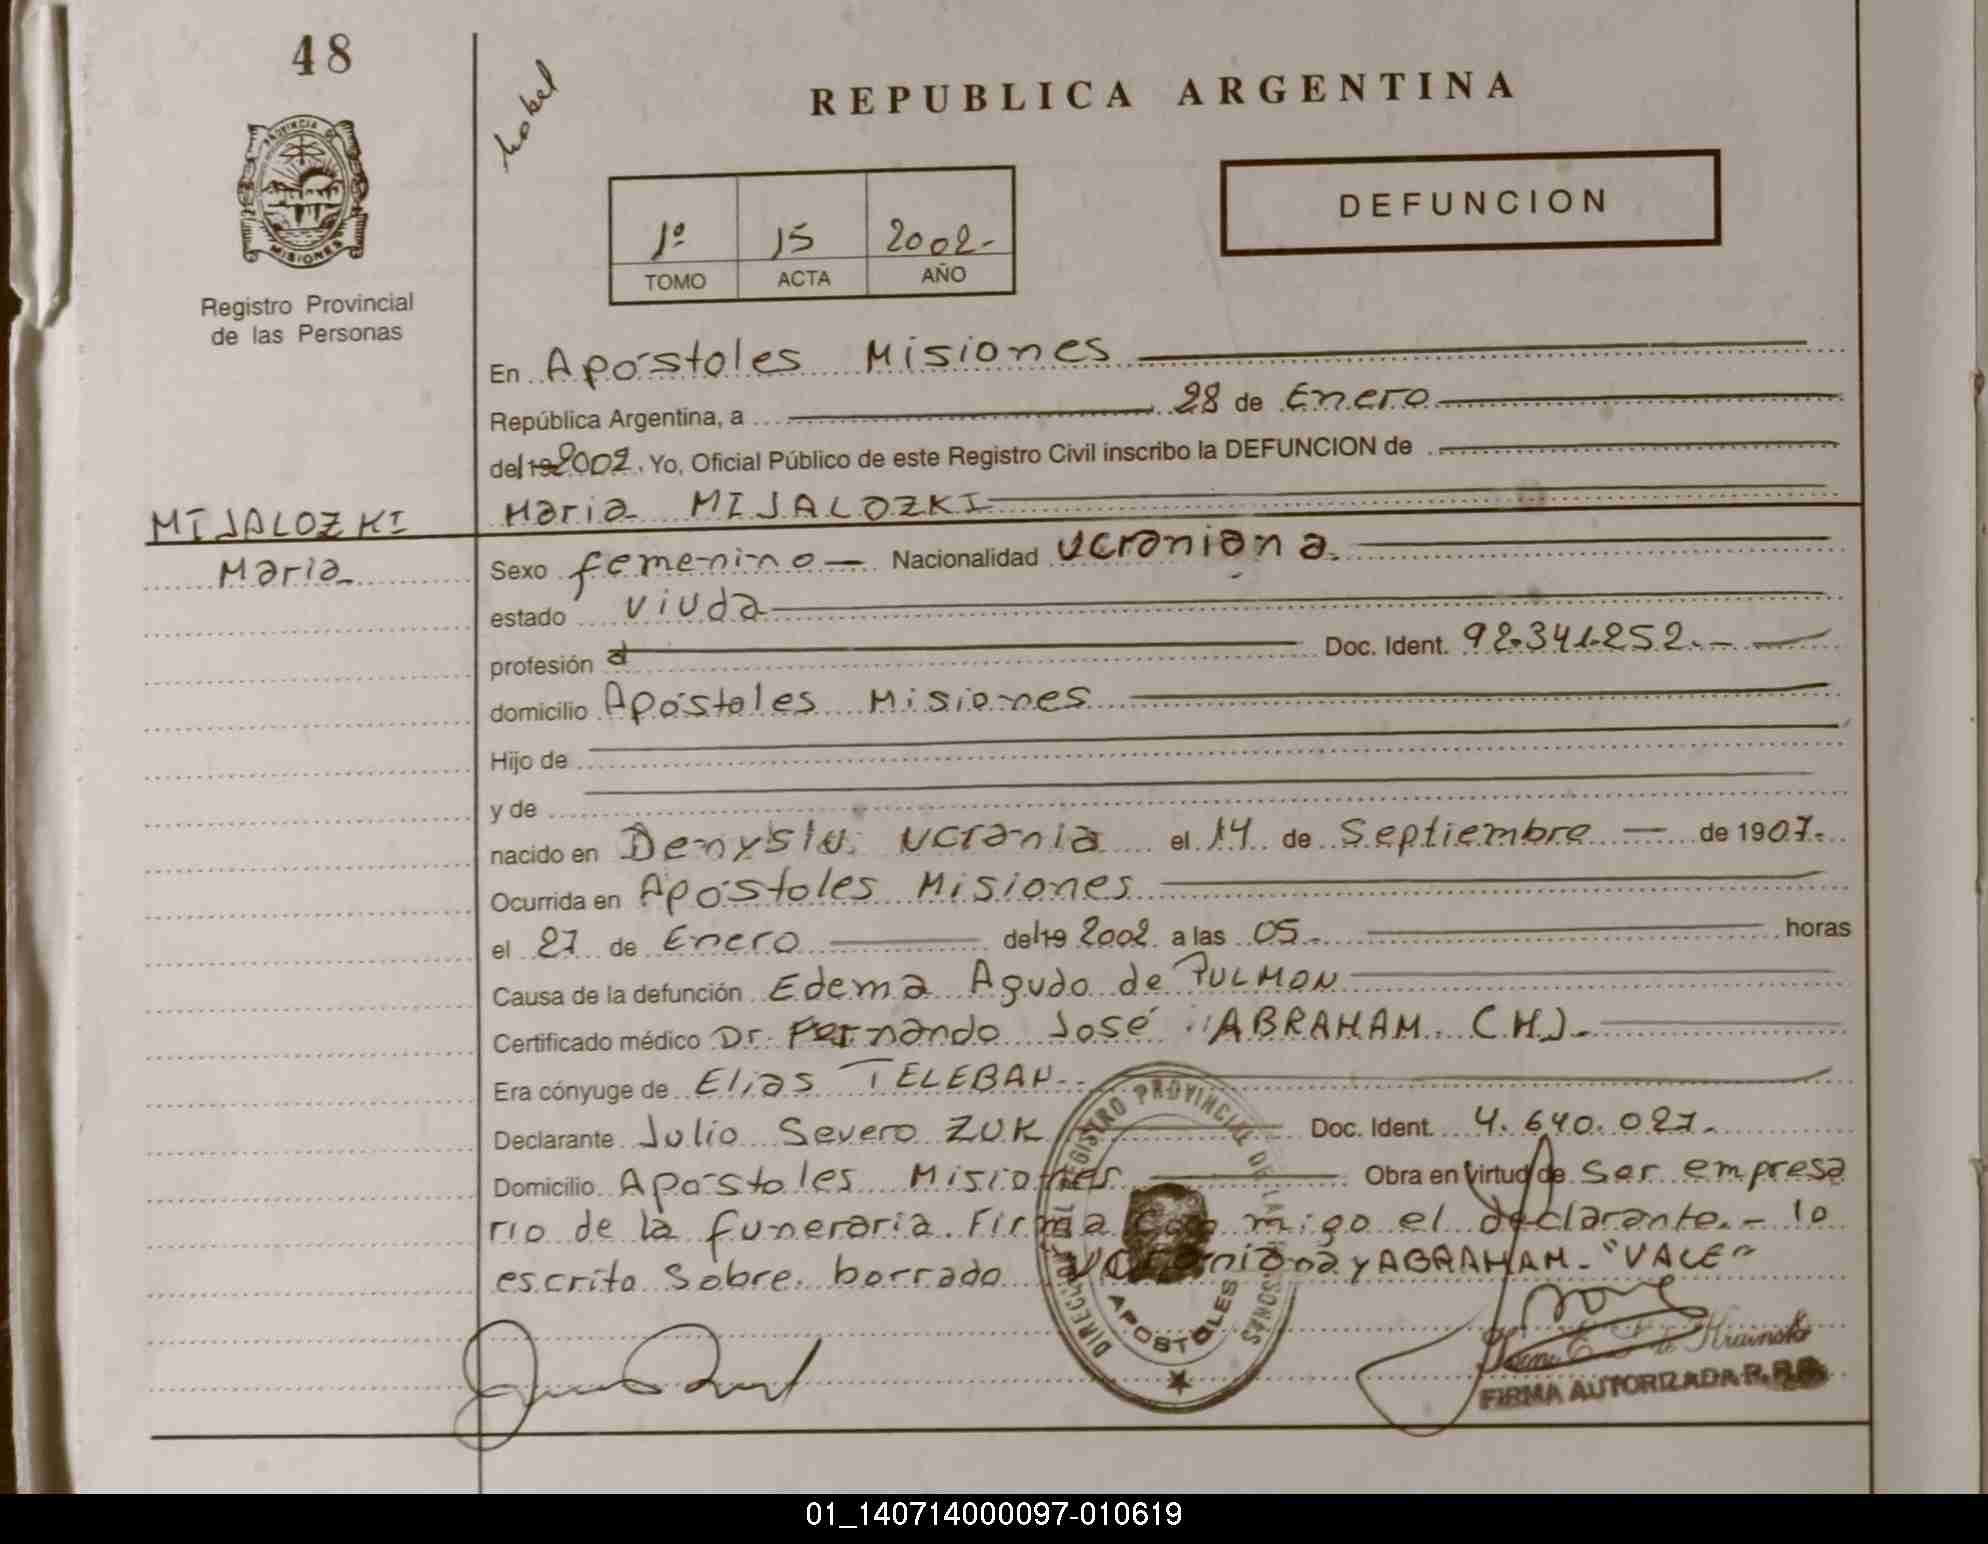 48
REPUBLICA ARGENTINA
PROVINCIA DE
MISIONES
DEFUNCION
1º 15 2002-
TOMO ACTA AÑO
Registro Provincial
de las Personas
En Apóstoles Misiones
República Argentina, a 28 de Enero
del 19 2002. Yo, Oficial Público de este Registro Civil inscribo la DEFUNCION de
MIJALOZKI
Maria MIJALOZKI
Maria
Sexo femenino — Nacionalidad ucraniana.
estado viuda
profesión Doc. Ident. 92.341.252.-
domicilio Apóstoles Misiones
Hijo de
y de
nacido en Denyslu. ucrania el 14 de Septiembre — de 1907.
Ocurrida en Apóstoles Misiones
el 27 de Enero del 19 2002 a las 05.- horas
Causa de la defunción Edema Agudo de PULMON
Certificado médico Dr. Fernando José ABRAHAM. C.H.J.-
Era cónyuge de Elias TELEBAN.-
Declarante Julio Severo ZUK Doc. Ident. 4.640.027.
Domicilio Apóstoles Misiones Obra en virtud de ser empresa
rio de la funeraria. Firma Con migo el declarante.- lo
escrito sobre borrado ucraniana y ABRAHAM- "VALE"
DIRECC. DEL REGISTRO PROVINCIAL DE LAS PERSONAS
APOSTOLES
FIRMA AUTORIZADA
01_140714000097-010619